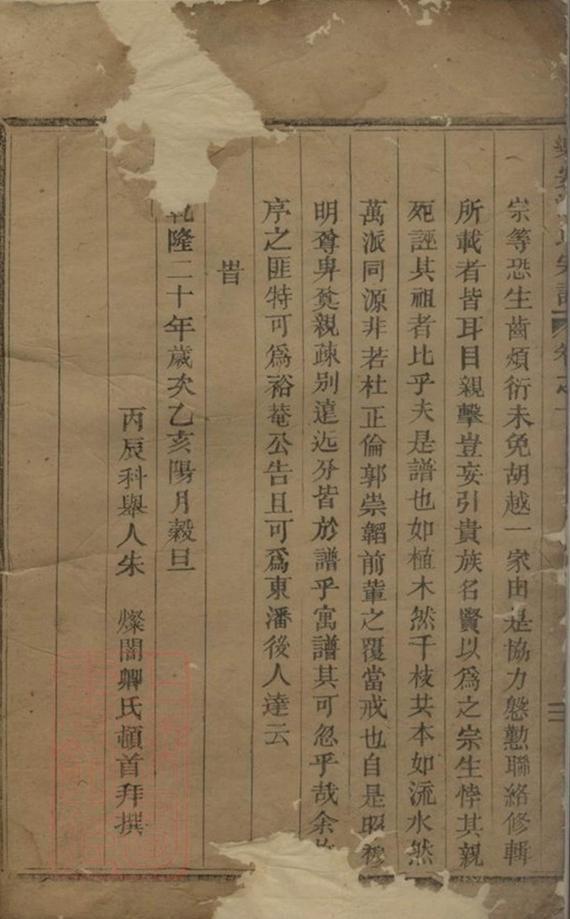 宗等恐生齒煩衍未免胡越一家由是協力慇懃聯絡修輯
所載者皆耳目親擊豈妄引貴族名賢以爲之宗生悖其親
死誣其祖者比乎夫是譜也如植木然千枝共本如流水然
萬派同源非若杜正倫郭崇韜前輩之覆當戒也自是昭穆
明尊卑差親疎別遠近分皆於譜乎寓譜其可忽乎哉余
序之匪特可爲裕菴公告且可爲東潘後人達云
旹
乾隆二十年歲次乙亥陽月穀旦
丙辰科舉人朱 燦闇卿氏頓首拜撰